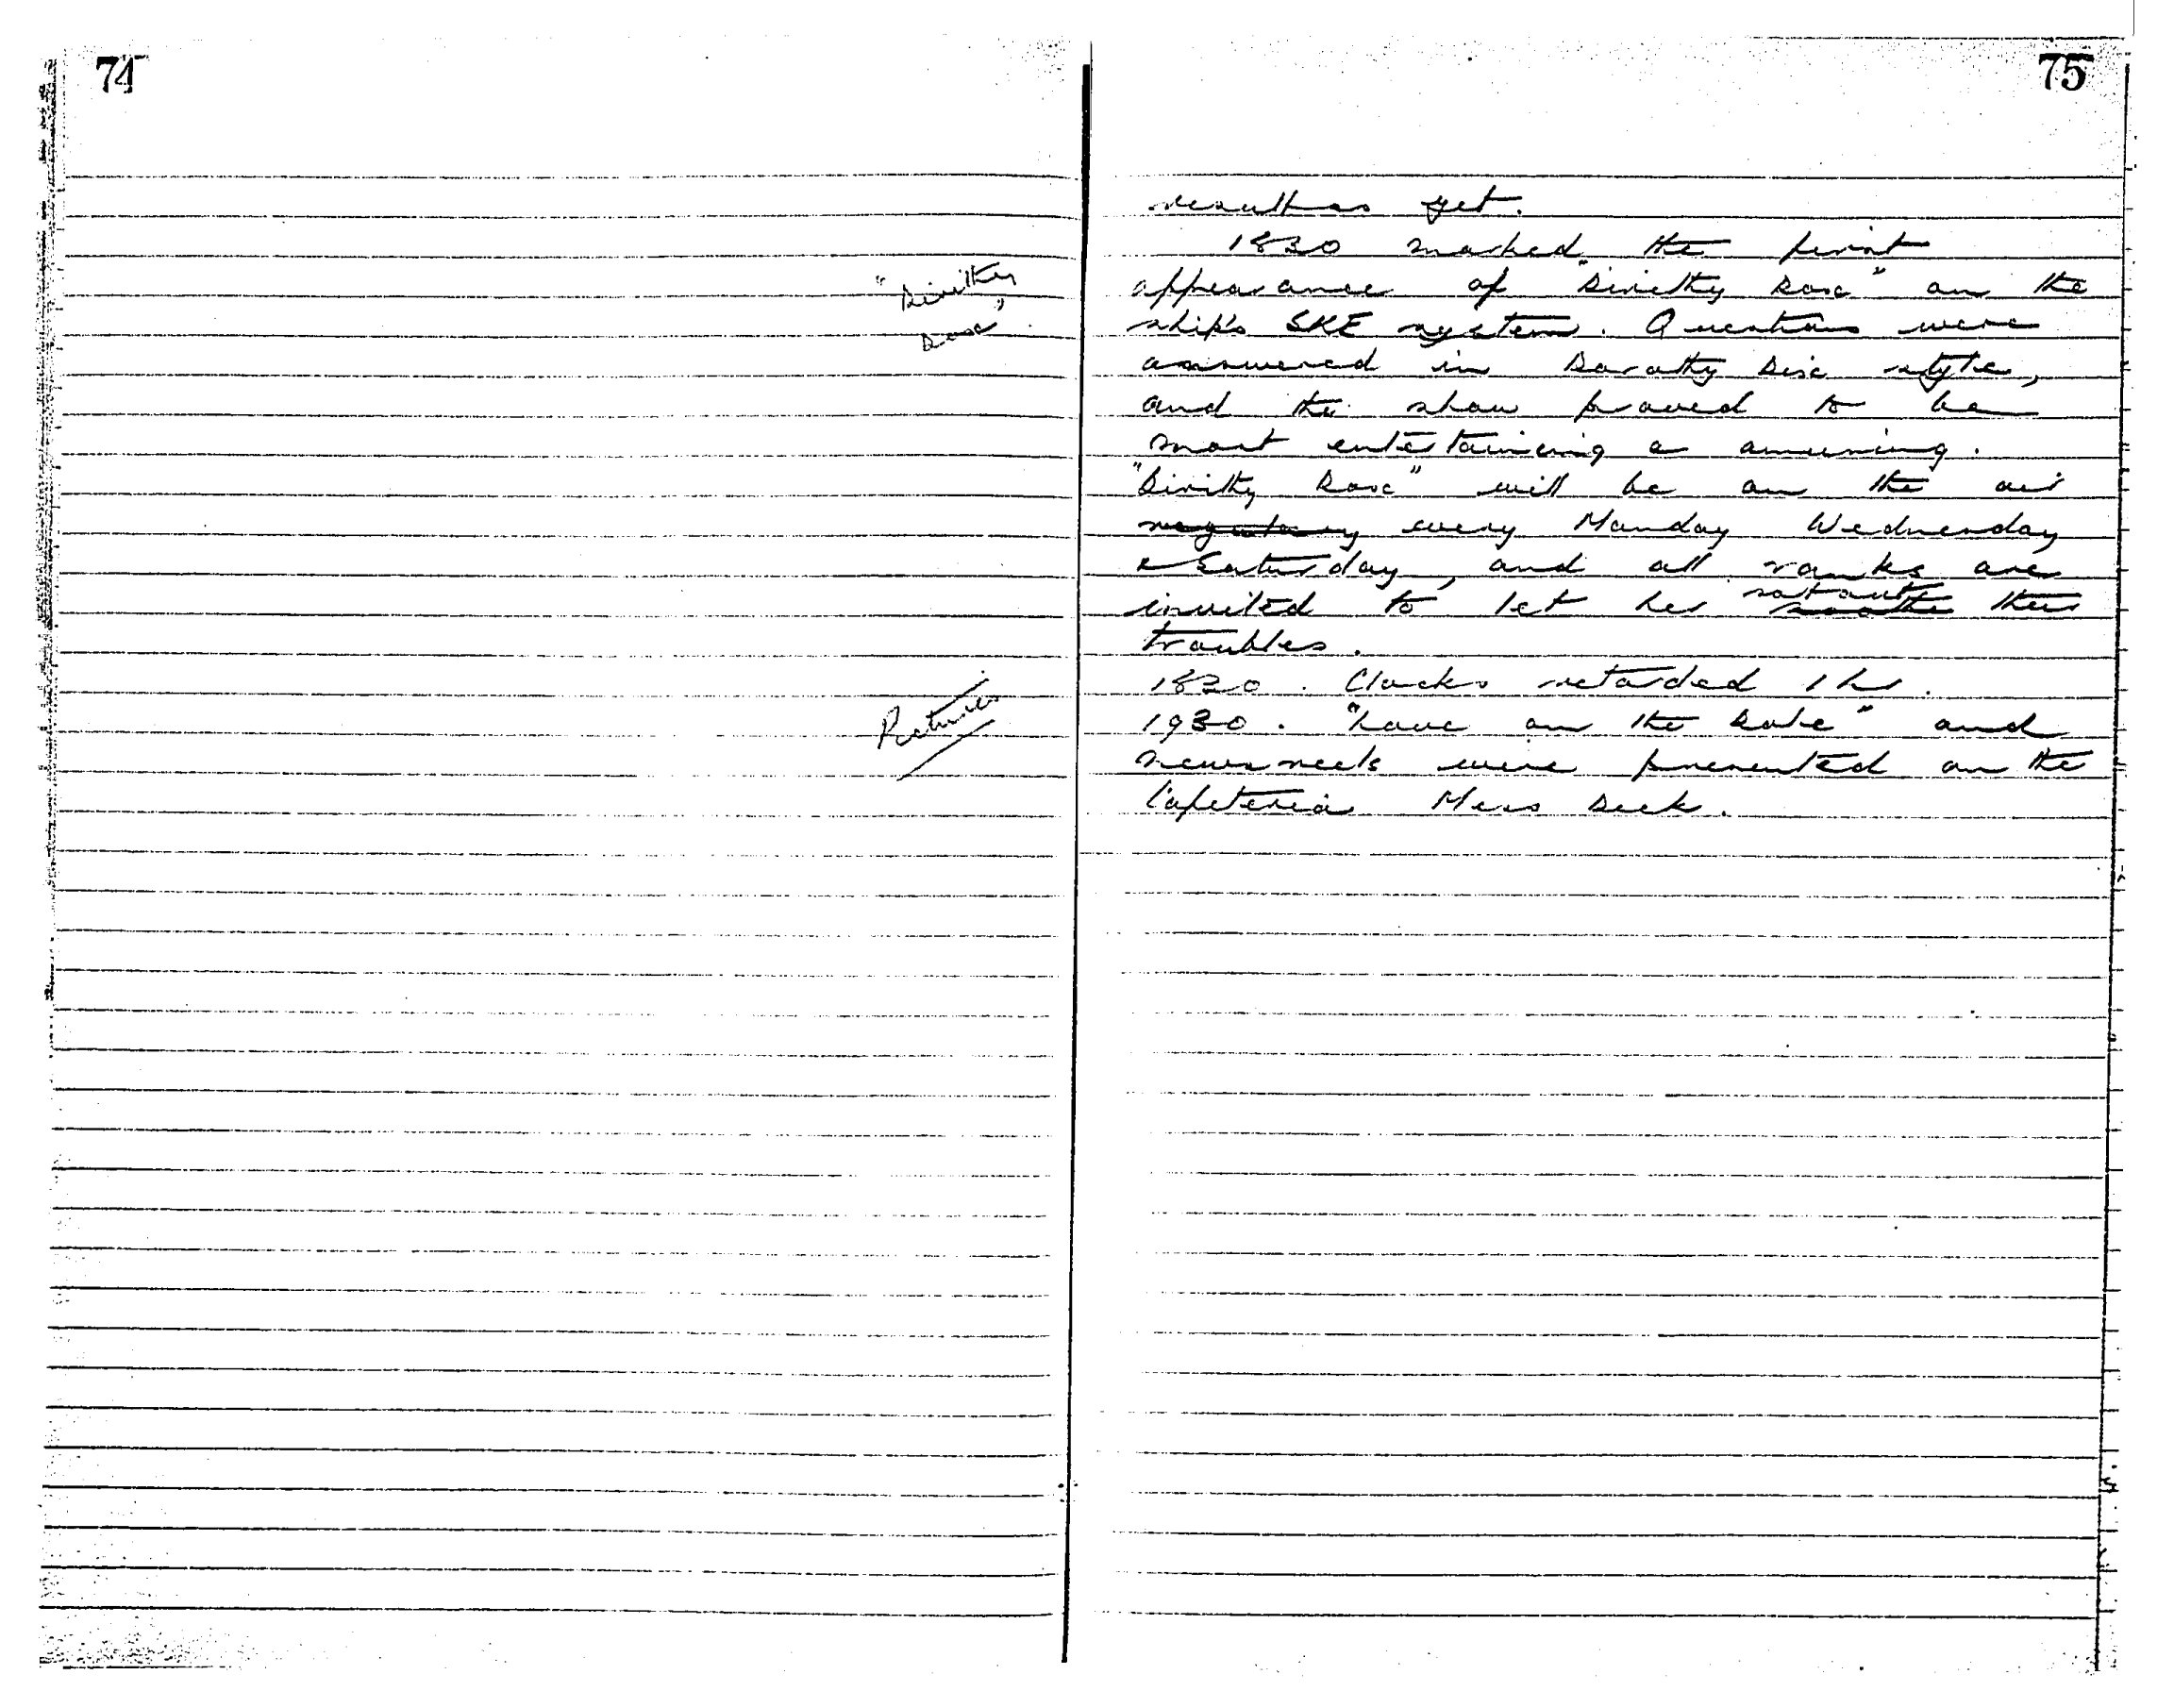 74
"Dirithy
Doxe"
Pictures
75
results yet.
1830 marked the first
appearance of "Dirithy Doxe" on the
ship's SRE system. Questions were
answered in Dorothy Dix style,
and the show proved to be
most entertaining & amusing.
"Dirithy Doxe" will be on the air
every Monday Wednesday
& Saturday, and all ranks are
invited to let her their
troubles.
1830. Clocks retarded 1 hr.
1930. "Love on the Dole" and
newsreels were presented on the
Cafeteria Mess Deck.